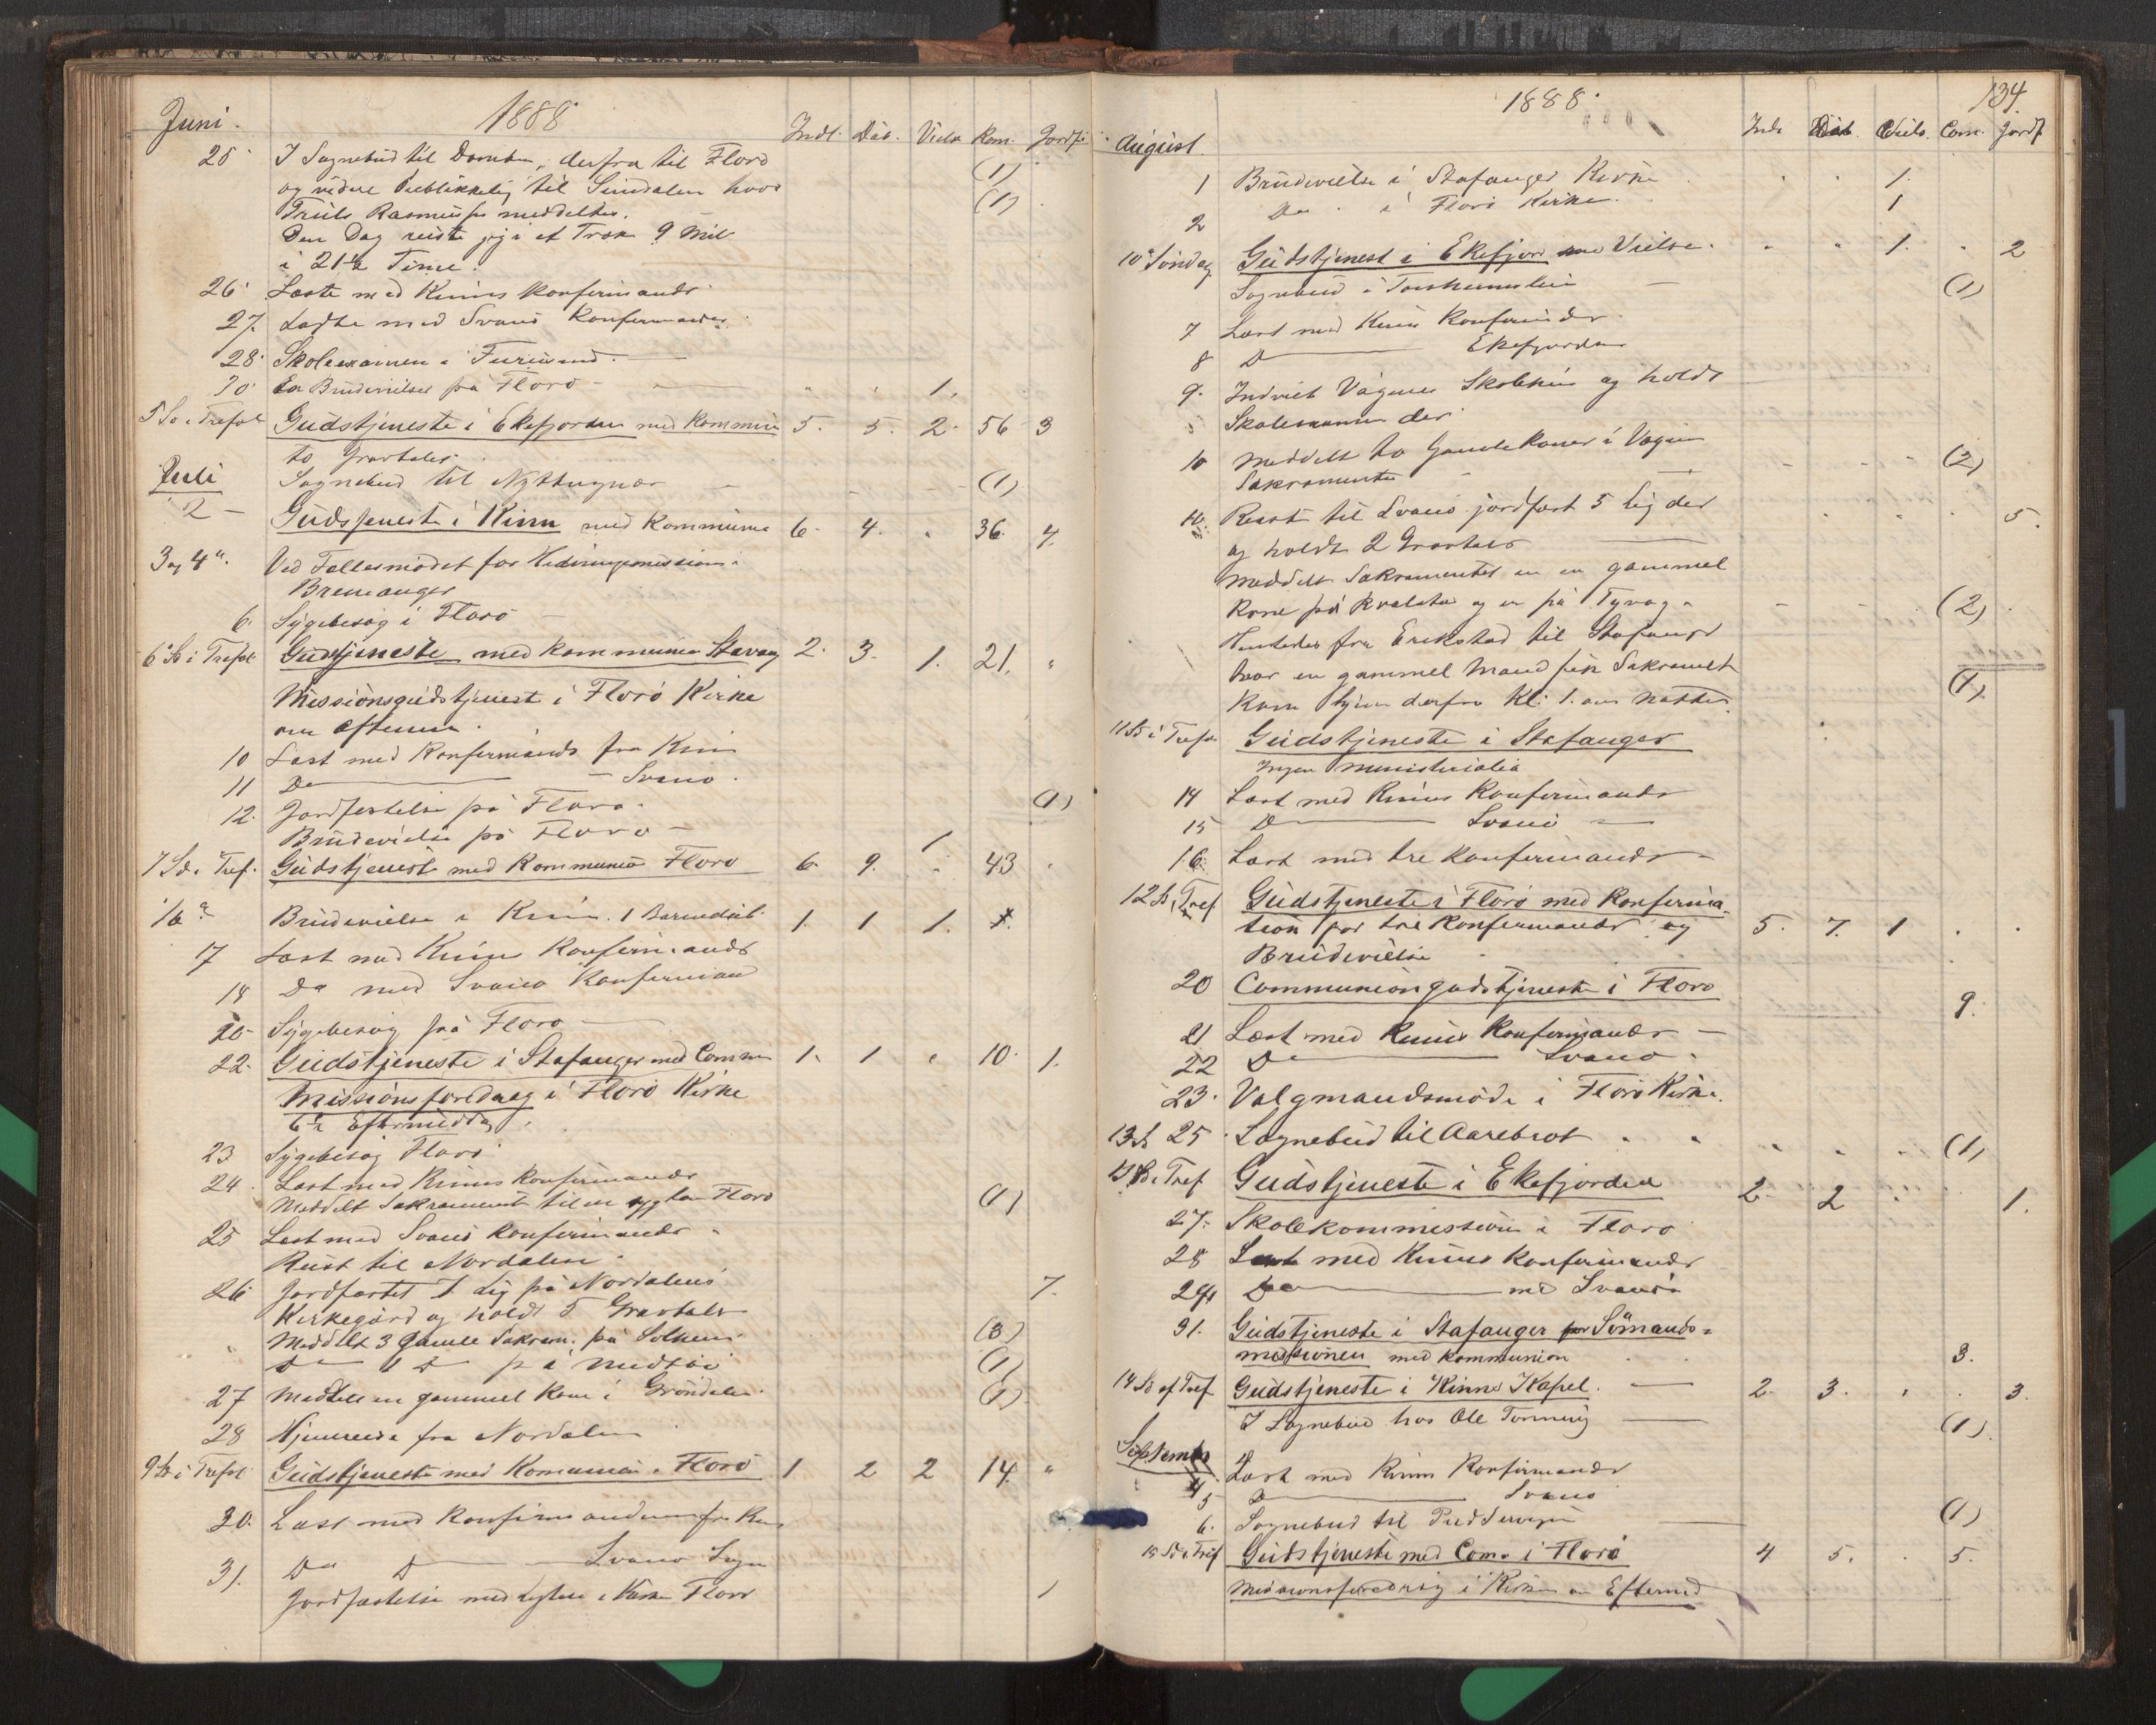 Juni. 1888 Indl. Dåb. Vielse Kom. Jordf.
25 I Sognebud til Domben, derfra til Florö (1)
og videre til Sundalen hvor (1)
Truls Rasmussen meddeltes.
Den Dag reiste jeg i et Træk 9 Mil
i 21½ Time.
26 Læste med Kinns Konfirmander
27. Læste med Svanö Konfirmander
28 Skoleexamen i
30 En Brudevielse på Florö 1.
5 Sö. i Trefol. Gudstjeneste i Ekefjorden med Kommun 5. 5. 2. 56 3
to Gravtaler.
Juli Sognebud til (1)
2 Gudstjeneste i Kinn med Kommunion 6. 4. 36. 4.
3 og 4 Ved Fællesmödet for Hedningemissionen i
Bremanger
6. Sygebesög i Florö
6 Sö i Trefol Gudstjeneste med Kommunion Stavang 2. 3. 1. 21.
Missionsgudstjenest i Florö Kirke
om Aftenen.
10 Læst med Konfirmands fra Kinn
11 Do Svanö.
12. Jordfestelse på Florö. (1)
Brudevielse på Florö 1
7 Sö. Tref. Gudstjenest med Kommunion Florö 6. 9. 43
16 Brudevielse i Kinn. 1 Barnedåb. 1. 1 1.
17 Læst med Kinns Konfirmander
18 Do med Svanö Konfirmand
20 Sygebesög på Florö
22. Gudstjeneste i Stafanger med Comm 1. 1 10. 1.
Missionsforedrag i Florö Kirke
Eftermiddag.
23 Sygebesög Florö
24. Læst med Kinns Konfirmander
Meddelt Sakrament til en syg Florö (1)
25 Læst med Svanö Konfirmander
Reist til Nordalen.
26 Jordfæstet 7 Lig på Nordalens 7.
Kirkegård og holdt 5 Gravtaler
Meddelt 3 Gamle Sakram. på Solheim (3)
Do 1 Do på (1)
27 Meddelt en gammel Kone i Gröndalen (1)
28 Hjemreise fra Nordalen
9 Sö i Trefol. Gudstjeneste med Komunion i Florö 1 2 2 14.
30. Læst med Konfirmanderne fra Kinn
31. Do Do Svanö Sogn
Jordfæstelse med i Kirken Florö 1
134.
August. 1888. Indl Dåb. Viels. Com. Jordf
1 Brudevielse i Stafanger Kirke 1.
2 Do i Florö Kirke. 1
10 Söndag Gudstjenest i Ekefjord med Vielse. 1. 2
Sognebud i (1)
7 Læst med Kinns Konfirmander
8 D Ekefjorden
9. Indviet Vågenes Skolehus og holdt
Skoleexamen der.
10 Meddelt to Gamle Koner i Vågene (2)
Sakramentet
10. Reist til Svanö jordfæst 5 Lig der 5.
og holdt 2 Gravtaler
Meddelt Sakramentet en en gammel
Kone på og en på (2)
Hentedes fra Erikstad til Stafanger
hvor en gammel Mand fik Sakrament (1)
Kom hjem derfra Kl. 1. om Natten.
11 Sö i Trefol Gudstjeneste i Stafanger
Ingen Ministerialia
14 Læst med Kinns Konfirmander
15 D Svanö
16. Læst med tre Konfirmander
12 Sö i Tref Gudstjeneste i Florö med Konfirma-
tion for tre Konfirmander og 5. 7. 1
Brudevielse
20 Communiongudstjeneste i Florö 9.
21 Læst med Kinns Konfirmander
22 Do Svanö
23. Valgmandsmöde i Florö Kirke.
25 Sognebud til Aarebrot (1)
13 Sö. Tref Gudstjeneste i Ekefjorden 2. 2 1.
27. Skolekommission i Florö
28 Læst med Kinns Konfirmander
29 Do med Svanö
31. Gudstjeneste i Stafanger for Sömands-
missionen med Kommunion 3.
14 Sö af Tref Gudstjeneste i Kinns Kapel. 2. 3. 3.
I Sognebud hos Ole (1)
September
4 Læst med Kinns Konfirmander
5 D Svanö
6. Sognebud til (1)
15 Sö i Tref Gudstjeneste med Com. i Florö 4 5. 5.
Missionsforedrag i Kirken om Eftermid